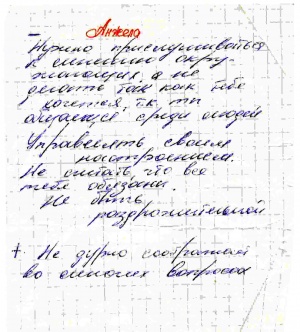 – Анжела
Нужно прислушиваться
к мнению окру
жающих, а не
делать так как тебе
хочется, т.к. ты
общаешься среди людей
Управлять своим
настроением.
Не считать, что все
тебе обязаны.
Не быть
раздражительной
+ Не дурно соображает
во многих вопросах